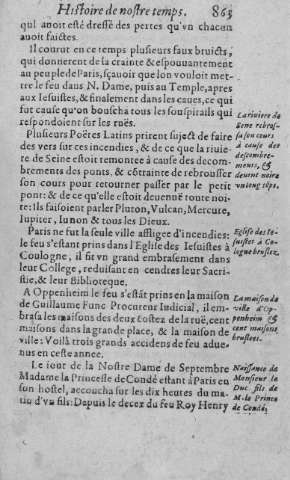 Histoire de nostre temps. 865
qui auoit esté dressé des pertes qu'vn chacun
auoit faictes.
Il courut en ce temps plusieurs faux bruicts,
qui donnerent de la crainte & espouuantement
au peuple de Paris, sçauoir que lon vouloit met-
tre le feu dans N. Dame, puis au Temple, apres
aux Iesuistes, & finalement dans les caues, ce qui
fut cause qu'on bouscha tous les souspirails qui
respondoient sur les rues.
Plusieurs Poëtes Latins prirent suject de faire
des vers sur ces incendies, & de ce que la riuie-
re de Seine estoit remontee à cause des decom-
bremens des ponts, & côtrainte de rebrousser
son cours pour retourner passer par le petit
pont: & de ce qu'elle estoit deuenuë toute noi-
re: Ils faisoient parler Pluton, Vulcan, Mercure,
Iupiter, Iunon & tous les Dieux.
La riuiere de
Sene rebrous-
sa son cours
à cause des
descembre-
ments, &
deuint noire
vn long tẽps.
Paris ne fut la seule ville affligee d'incendies:
le feu s'estant prins dans l'Eglise des Iesuistes à
Coulogne, il fit vn grand embrasement dans
leur College, reduisant en cendres leur Sacri-
stie, & leur Biblioteque.
Eglise des Ie-
suistes à Co-
logne bruslez.
A Oppenheim le feu s'estãt prins en la maison
de Guillaume Func Procureur Iudicial, il em-
brasa les maisons des deux costez de la ruë, cent
maisons dans la grande place, & la maison de
ville: Voilà trois grands accidens de feu adue-
nus en ceste annee.
La maison de
ville d'Op-
penheim &
cent maisons
bruslees.
Le iour de la Nostre Dame de Septembre
Madame la Princesse de Condé estant à Paris en
son hostel, accoucha sur les dix heures du ma-
tin d'vn fils: Depuis le decez du feu Roy Henry
Naissance de
Monsieur le
Duc fils de
M. le Prince
de Condé.